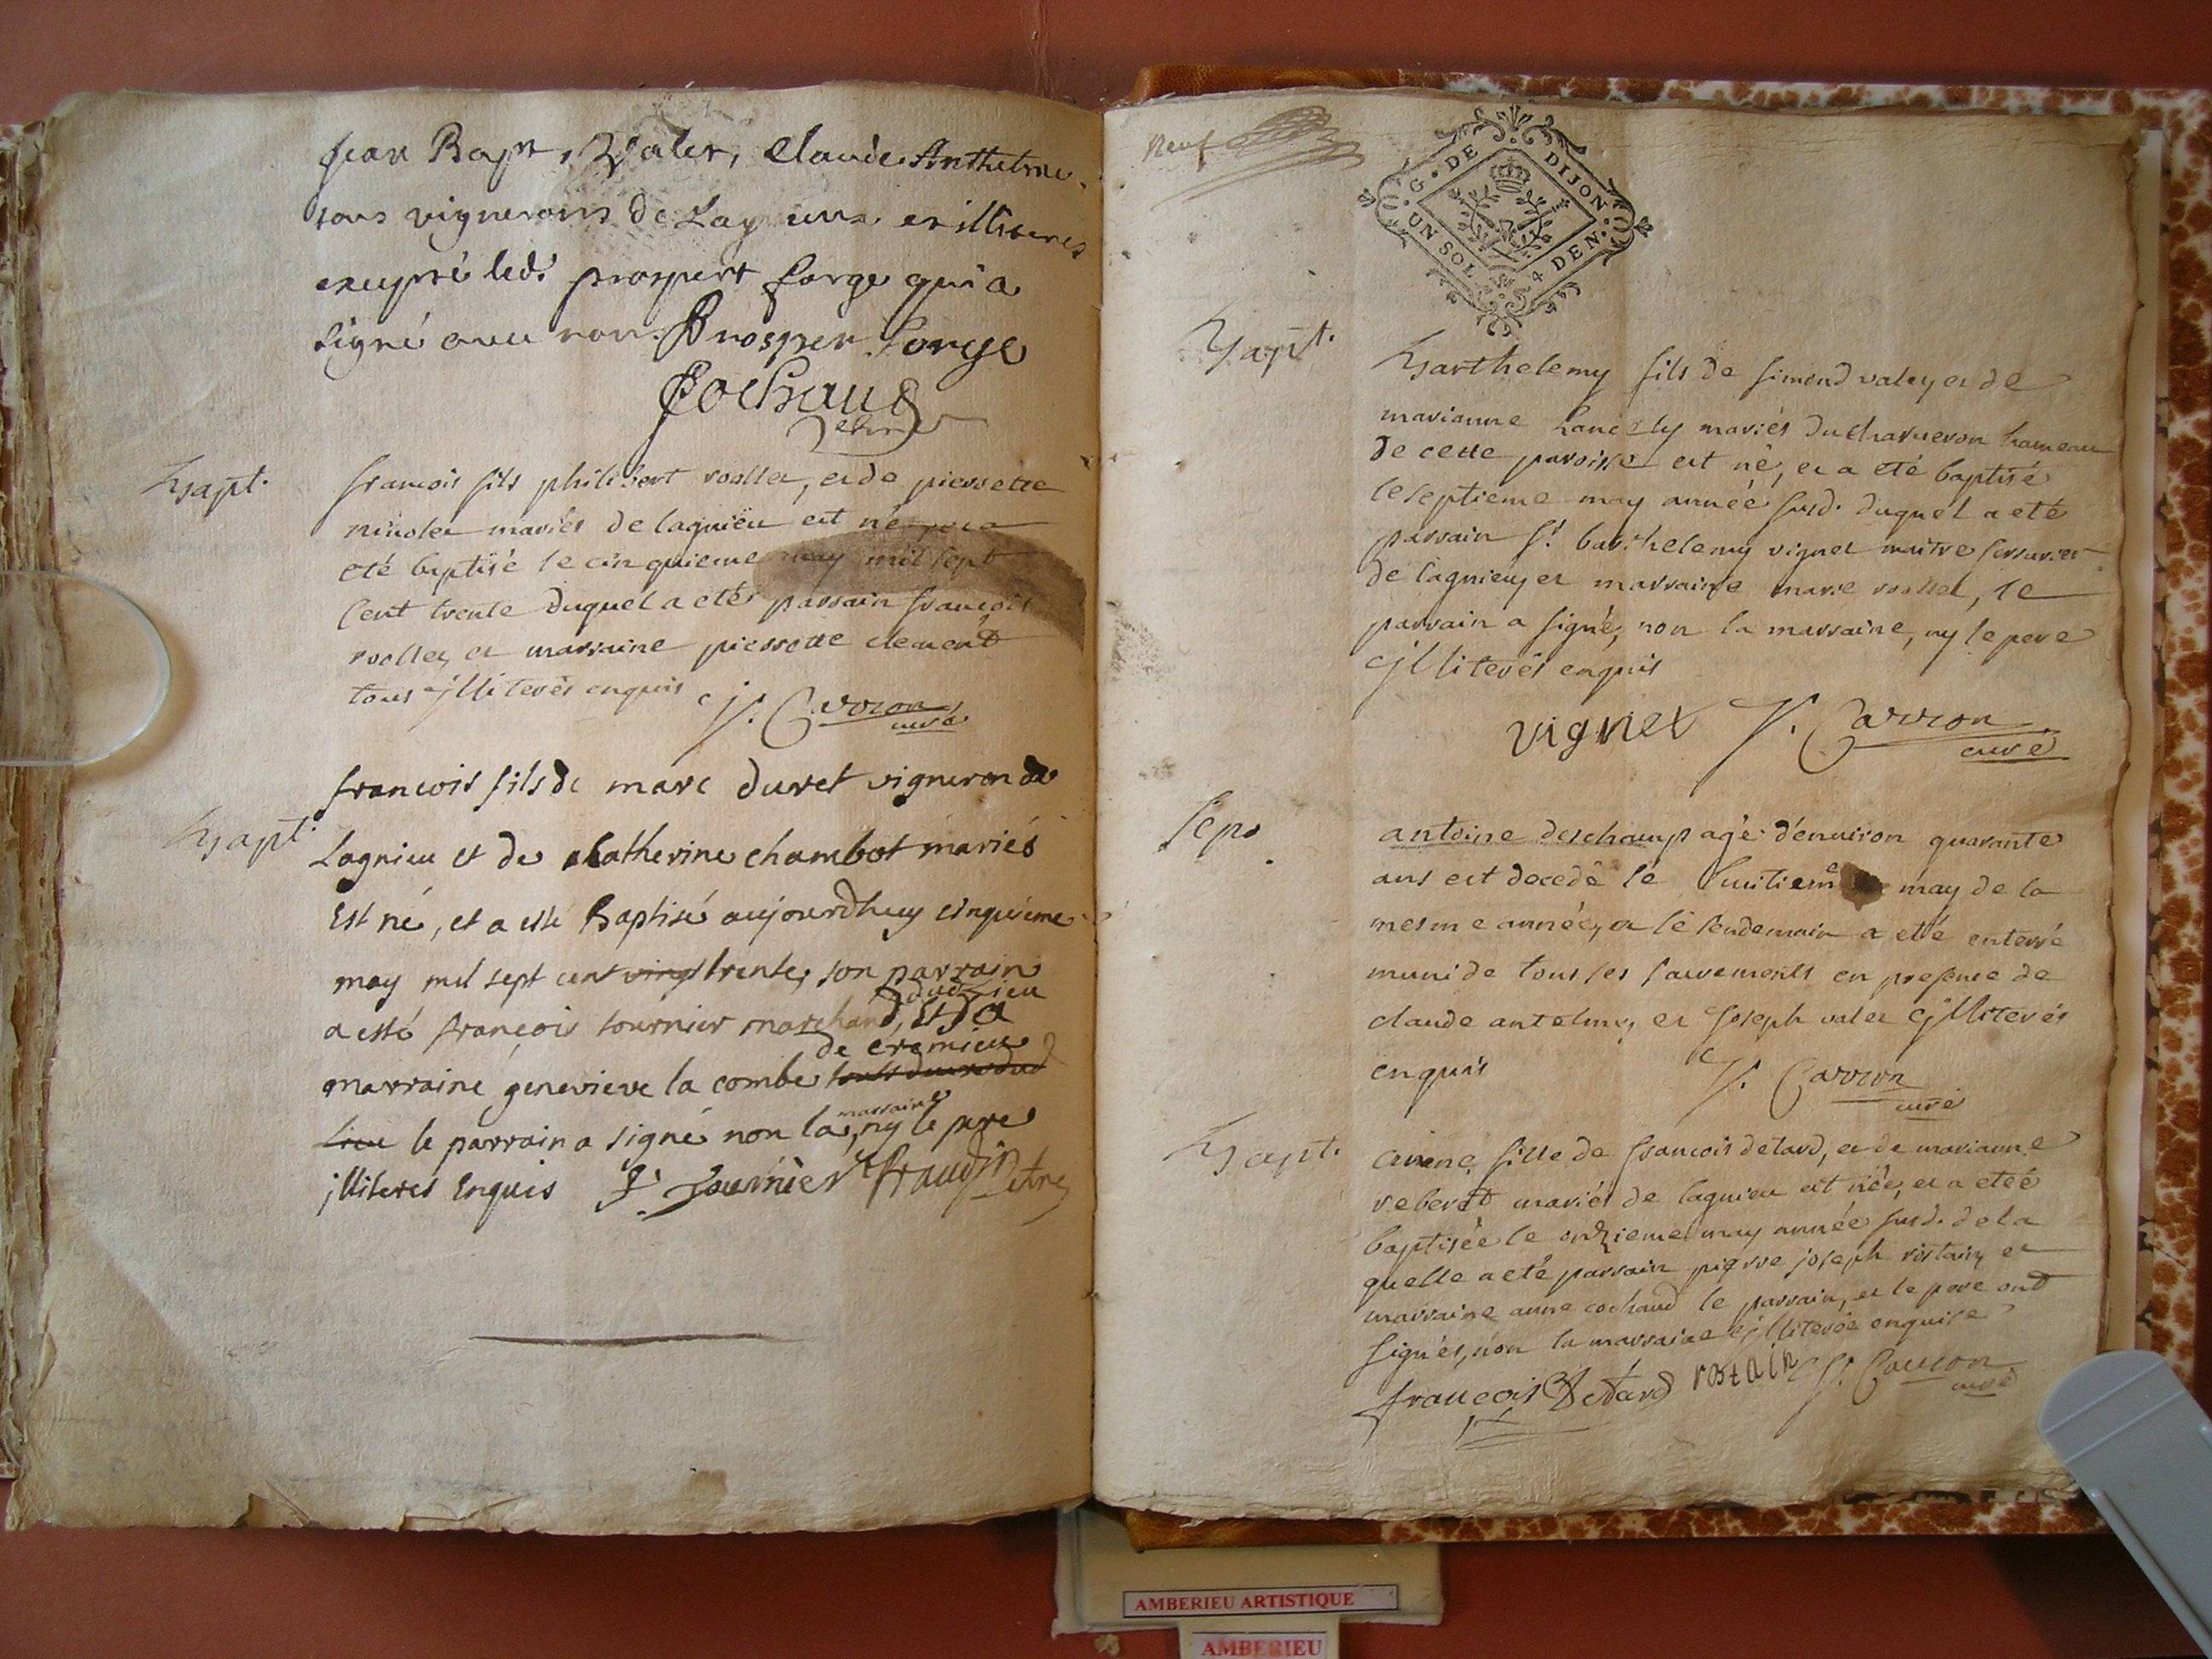 Jean Bapt, Valet, Claude Anthelme
tous vignerons de Lagnieu et illiteres
excepté led. prosper forge qui a
signé avec nous. Prosper forge
Cochaud
Bapt.
francois fils philibert rollet, et de pierrette
nicolet mariés de lagnieu est né et a
eté baptisé le cinquieme may mil sept
cent trente duquel a eté parrain françois
rollet, et marraine pierrette clement
tous illiterés enquis J. Carron
curé
Bapt.
francois fils de marc duret vigneron de
Lagnieu et de Catherine chambot mariés
Est né, et a esté Baptisé aujourdhuy cinquieme
may mil sept cent vingt trente, son parrain
a esté françois tournier marchand, Et La
de cremieu
marraine genevieve la combe
lieu le parrain a signé non la marraine, ny le pere
illiteres Enquis F. Tournier
neuf
G. DE DIJON
UN SOL 4 DEN.
Bapt.
Barthelemy fils de simond valey et de
marianne mariés du charveron hameau
de cette paroisse est né, et a eté baptisé
le septieme may année susd. duquel a eté
parrain Sr. barthelemy vignet maitre serrurier
de lagnieu, et marraine marie rollet, le
parrain a signé, non la marraine, ny le pere
illiterés enquis
vignet J. Carron
curé
Sep.
antoine deschamp agé d'environ quarante
ans est decedé le huitieme may de la
mesme année, et le lendemain a eté enterré
muni de tous les sacrements en presence de
claude antelme, et Joseph valet illiterés
enquis J. Carron
curé
Bapt.
fille de francois detard, et de marianne
reberet mariés de lagnieu est née, et a eteé
baptisée le ondzieme may année susd. de la
quelle a eté parrain pierre joseph rostain, et
marraine anne cochaud le parrain, et le pere ont
signés, non la marraine illiterée enquise
francois Detard rostain J. Carron
curé
AMBERIEU ARTISTIQUE
AMBERIEU